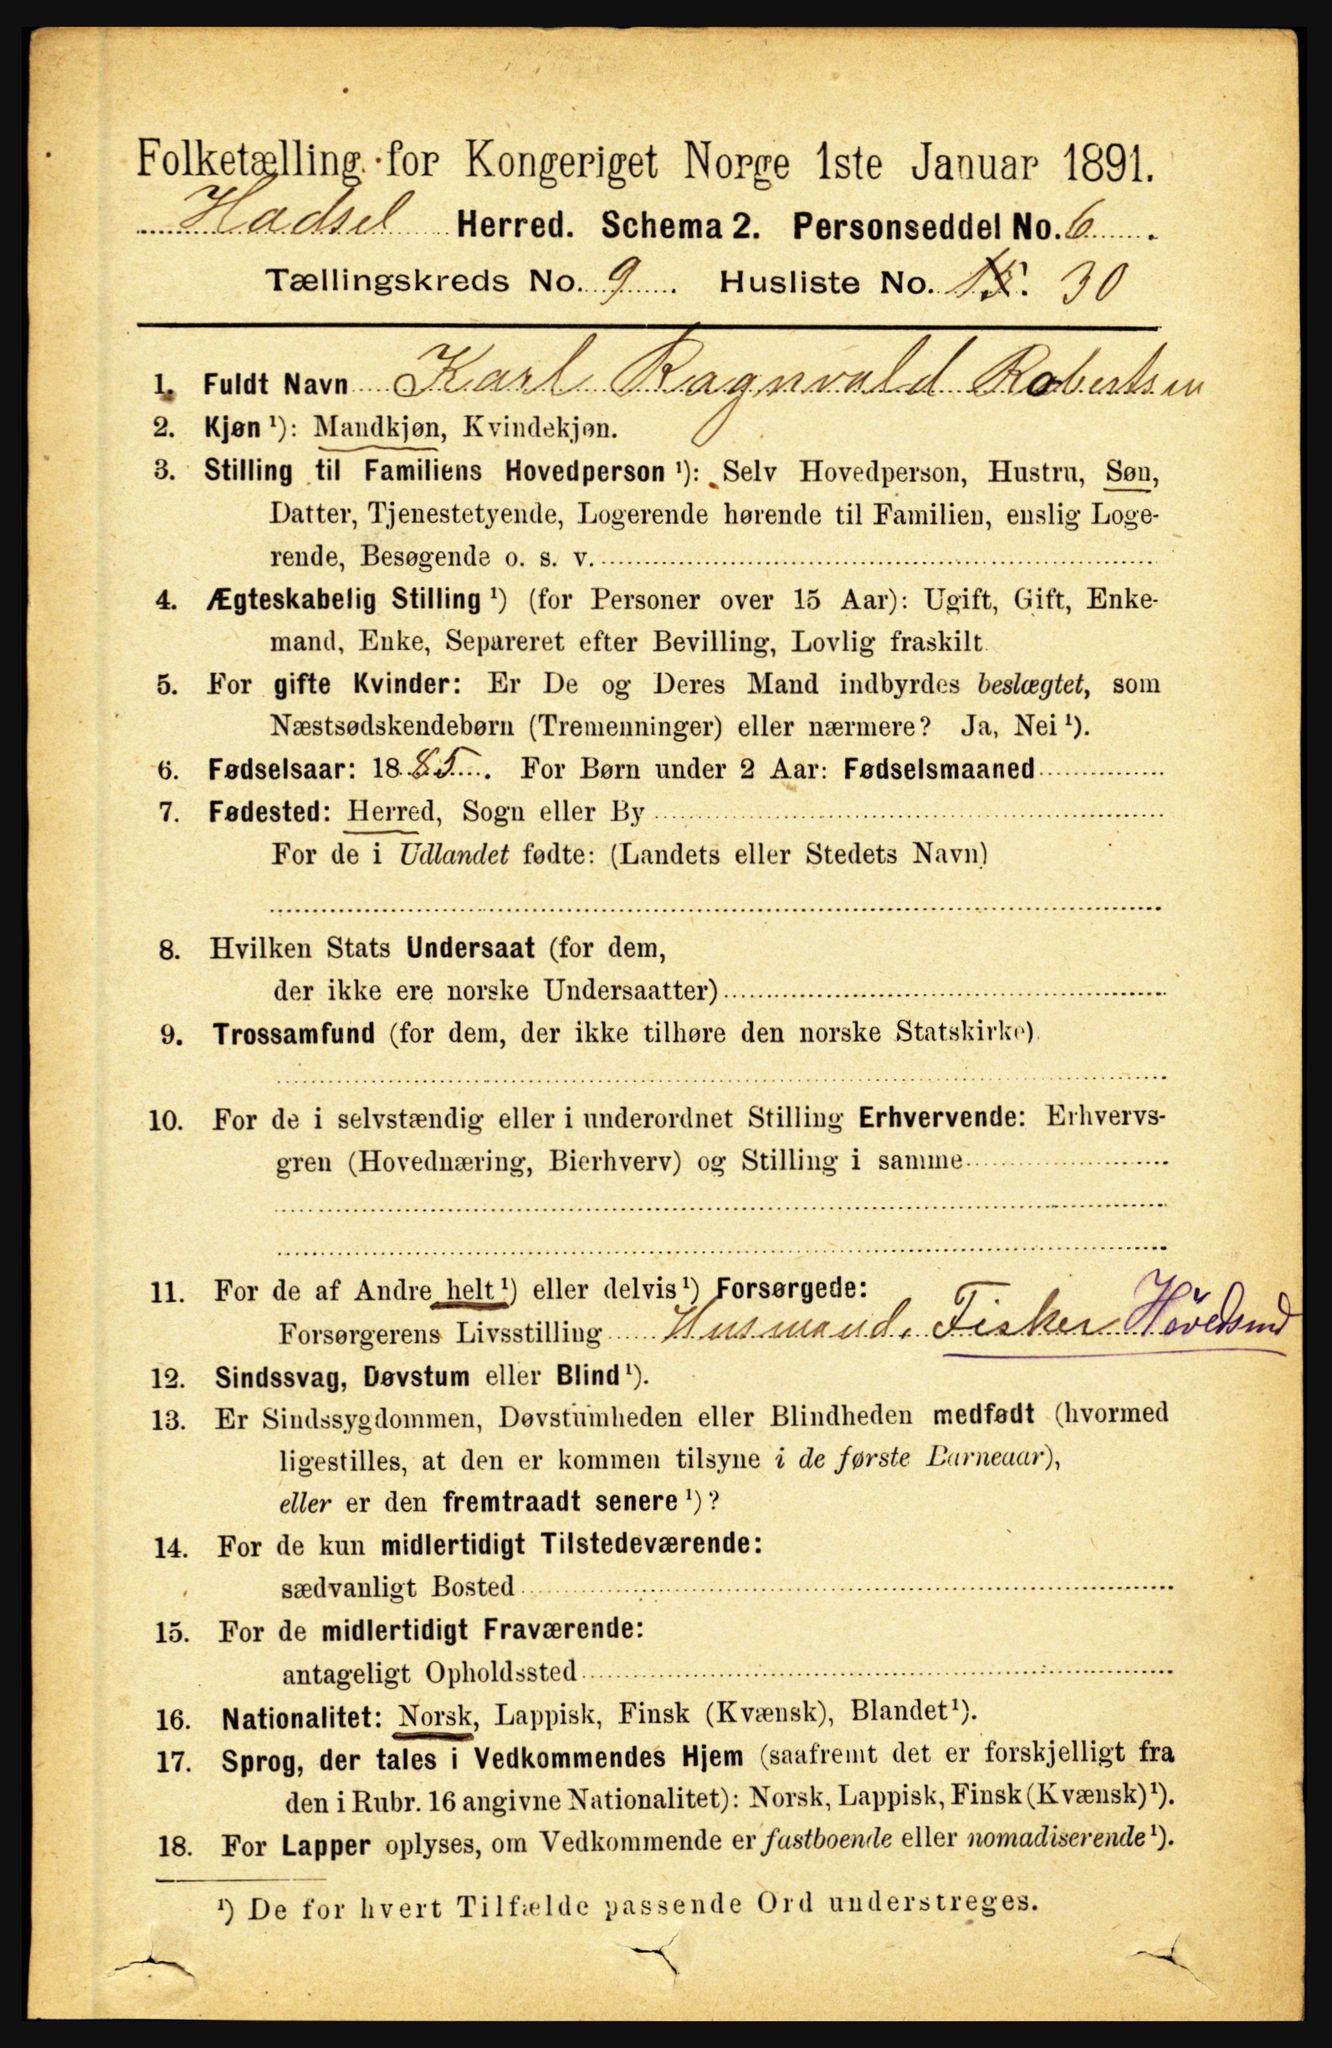 Folketælling for Kongeriget Norge 1ste Januar 1891.
Hadsel Herred. Schema 2. Personseddel No. 6.
Tællingskreds No. 9. Husliste No. 15. 30
1. Fuldt Navn Karl Ragnvald Robertsen
2. Kjøn ¹): Mandkjøn, Kvindekjøn.
3. Stilling til Familiens Hovedperson ¹): Selv Hovedperson, Hustru, Søn,
Datter, Tjenestetyende, Logerende hørende til Familien, enslig Loge-
rende, Besøgende o. s. v.
4. Ægteskabelig Stilling ¹) (for Personer over 15 Aar): Ugift, Gift, Enke-
mand, Enke, Separeret efter Bevilling, Lovlig fraskilt.
5. For gifte Kvinder: Er De og Deres Mand indbyrdes beslægtet, som
Næstsødskendebørn (Tremenninger) eller nærmere? Ja, Nei ¹).
6. Fødselsaar: 1885. For Børn under 2 Aar: Fødselsmaaned
7. Fødested: Herred, Sogn eller By
For de i Udlandet fødte: (Landets eller Stedets Navn)
8. Hvilken Stats Undersaat (for dem,
der ikke ere norske Undersaatter)
9. Trossamfund (for dem, der ikke tilhøre den norske Statskirke)
10. For de i selvstændig eller i underordnet Stilling Erhvervende: Erhvervs-
gren (Hovednæring, Bierhverv) og Stilling i samme
11. For de af Andre helt ¹) eller delvis ¹) Forsørgede:
Forsørgerens Livsstilling Husmand, Fisker
12. Sindssvag, Døvstum eller Blind ¹).
13. Er Sindssygdommen, Døvstumheden eller Blindheden medfødt (hvormed
ligestilles, at den er kommen tilsyne i de første Barneaar),
eller er den fremtraadt senere ¹)?
14. For de kun midlertidigt Tilstedeværende:
sædvanligt Bosted
15. For de midlertidigt Fraværende:
antageligt Opholdssted
16. Nationalitet: Norsk, Lappisk, Finsk (Kvænsk), Blandet ¹).
17. Sprog, der tales i Vedkommendes Hjem (saafremt det er forskjelligt fra
den i Rubr. 16 angivne Nationalitet): Norsk, Lappisk, Finsk (Kvænsk) ¹).
18. For Lapper oplyses, om Vedkommende er fastboende eller nomadiserende ¹).
¹) De for hvert Tilfælde passende Ord understreges.